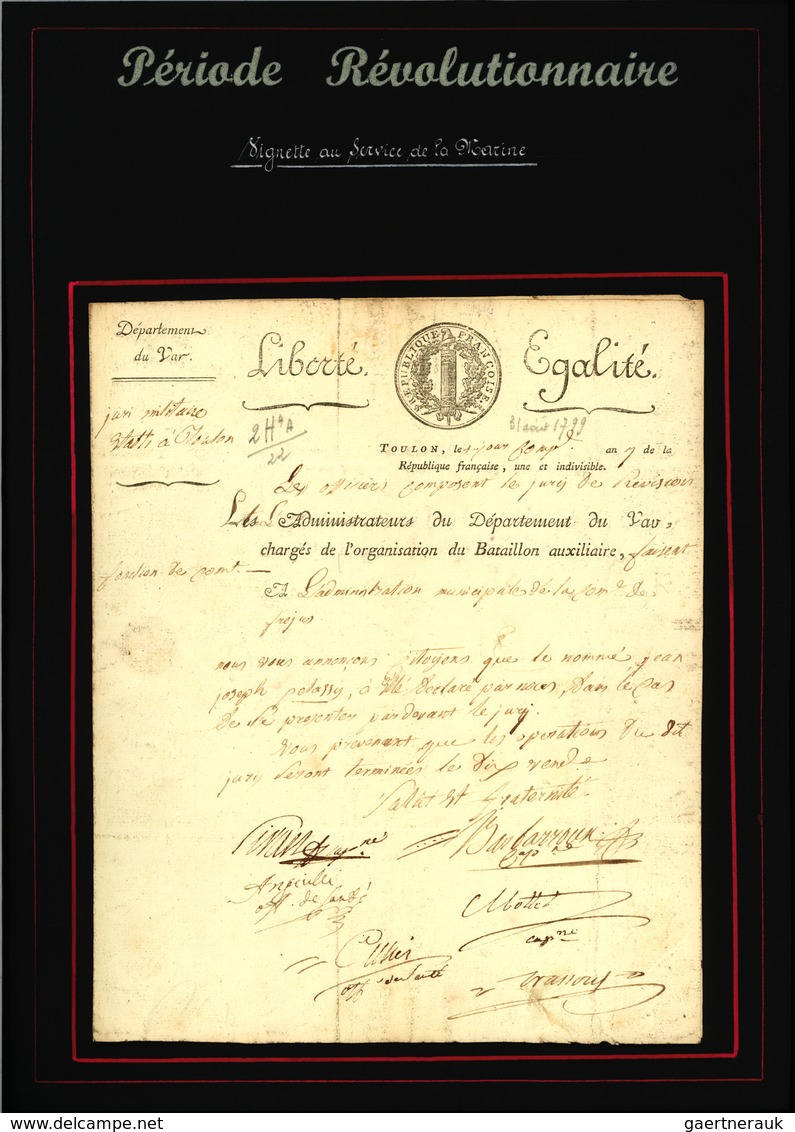 Période Révolutionnaire
Vignette au Service de la Marine
Département
du Var.
Liberté.
REPUBLIQUE FRANCOISE
Egalité.
juri militaire
à Toulon
2 H A
22
31 août 1799
TOULON, le jour an 7 de la
République française, une et indivisible.
Les officiers composent le jury de Revision
Les L'Administrateurs du Département du Var,
chargés de l'organisation du Bataillon auxiliaire, faisant
fonction de
A L'administration municipale de la com.e de
frejus
nous vous annonçons citoyens que le nommé jean
joseph pelassy, à été declaré par nous, dans le cas
de se presenter pardevant le jury.
Vous prevenant que les operations du dit
jury seront terminées le dix vend.e
Salut et fraternité
Barbarroux
off. de santé
Mottet
capne
off de santé
gaertnerauk
www.delcampe.net